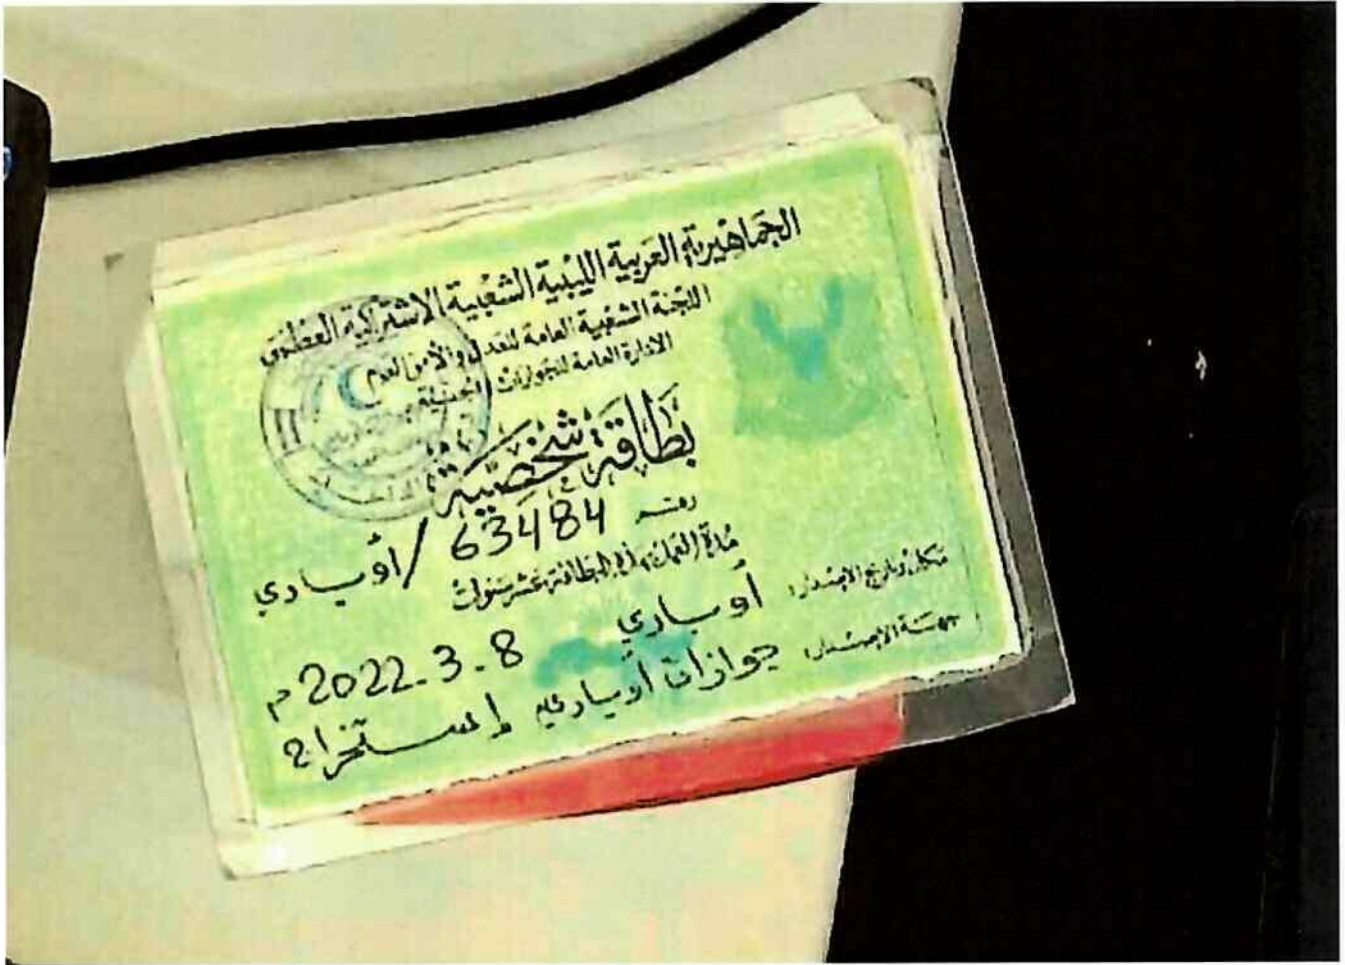 الجماهيرية العربية الليبية الشعبية الاشتراكية العظمى
اللجنة الشعبية العامة للعدل والأمن العام
الادارة العامة للجوازات والجنسية
بطاقة شخصية
رقم 63484 / أوباري
مدة العمل بهذه البطاقة عشر سنوات
مكان وتاريخ الاصدار: أوباري 8-3-2022 م
جهة الاصدار: جوازات أوباري إستخراج